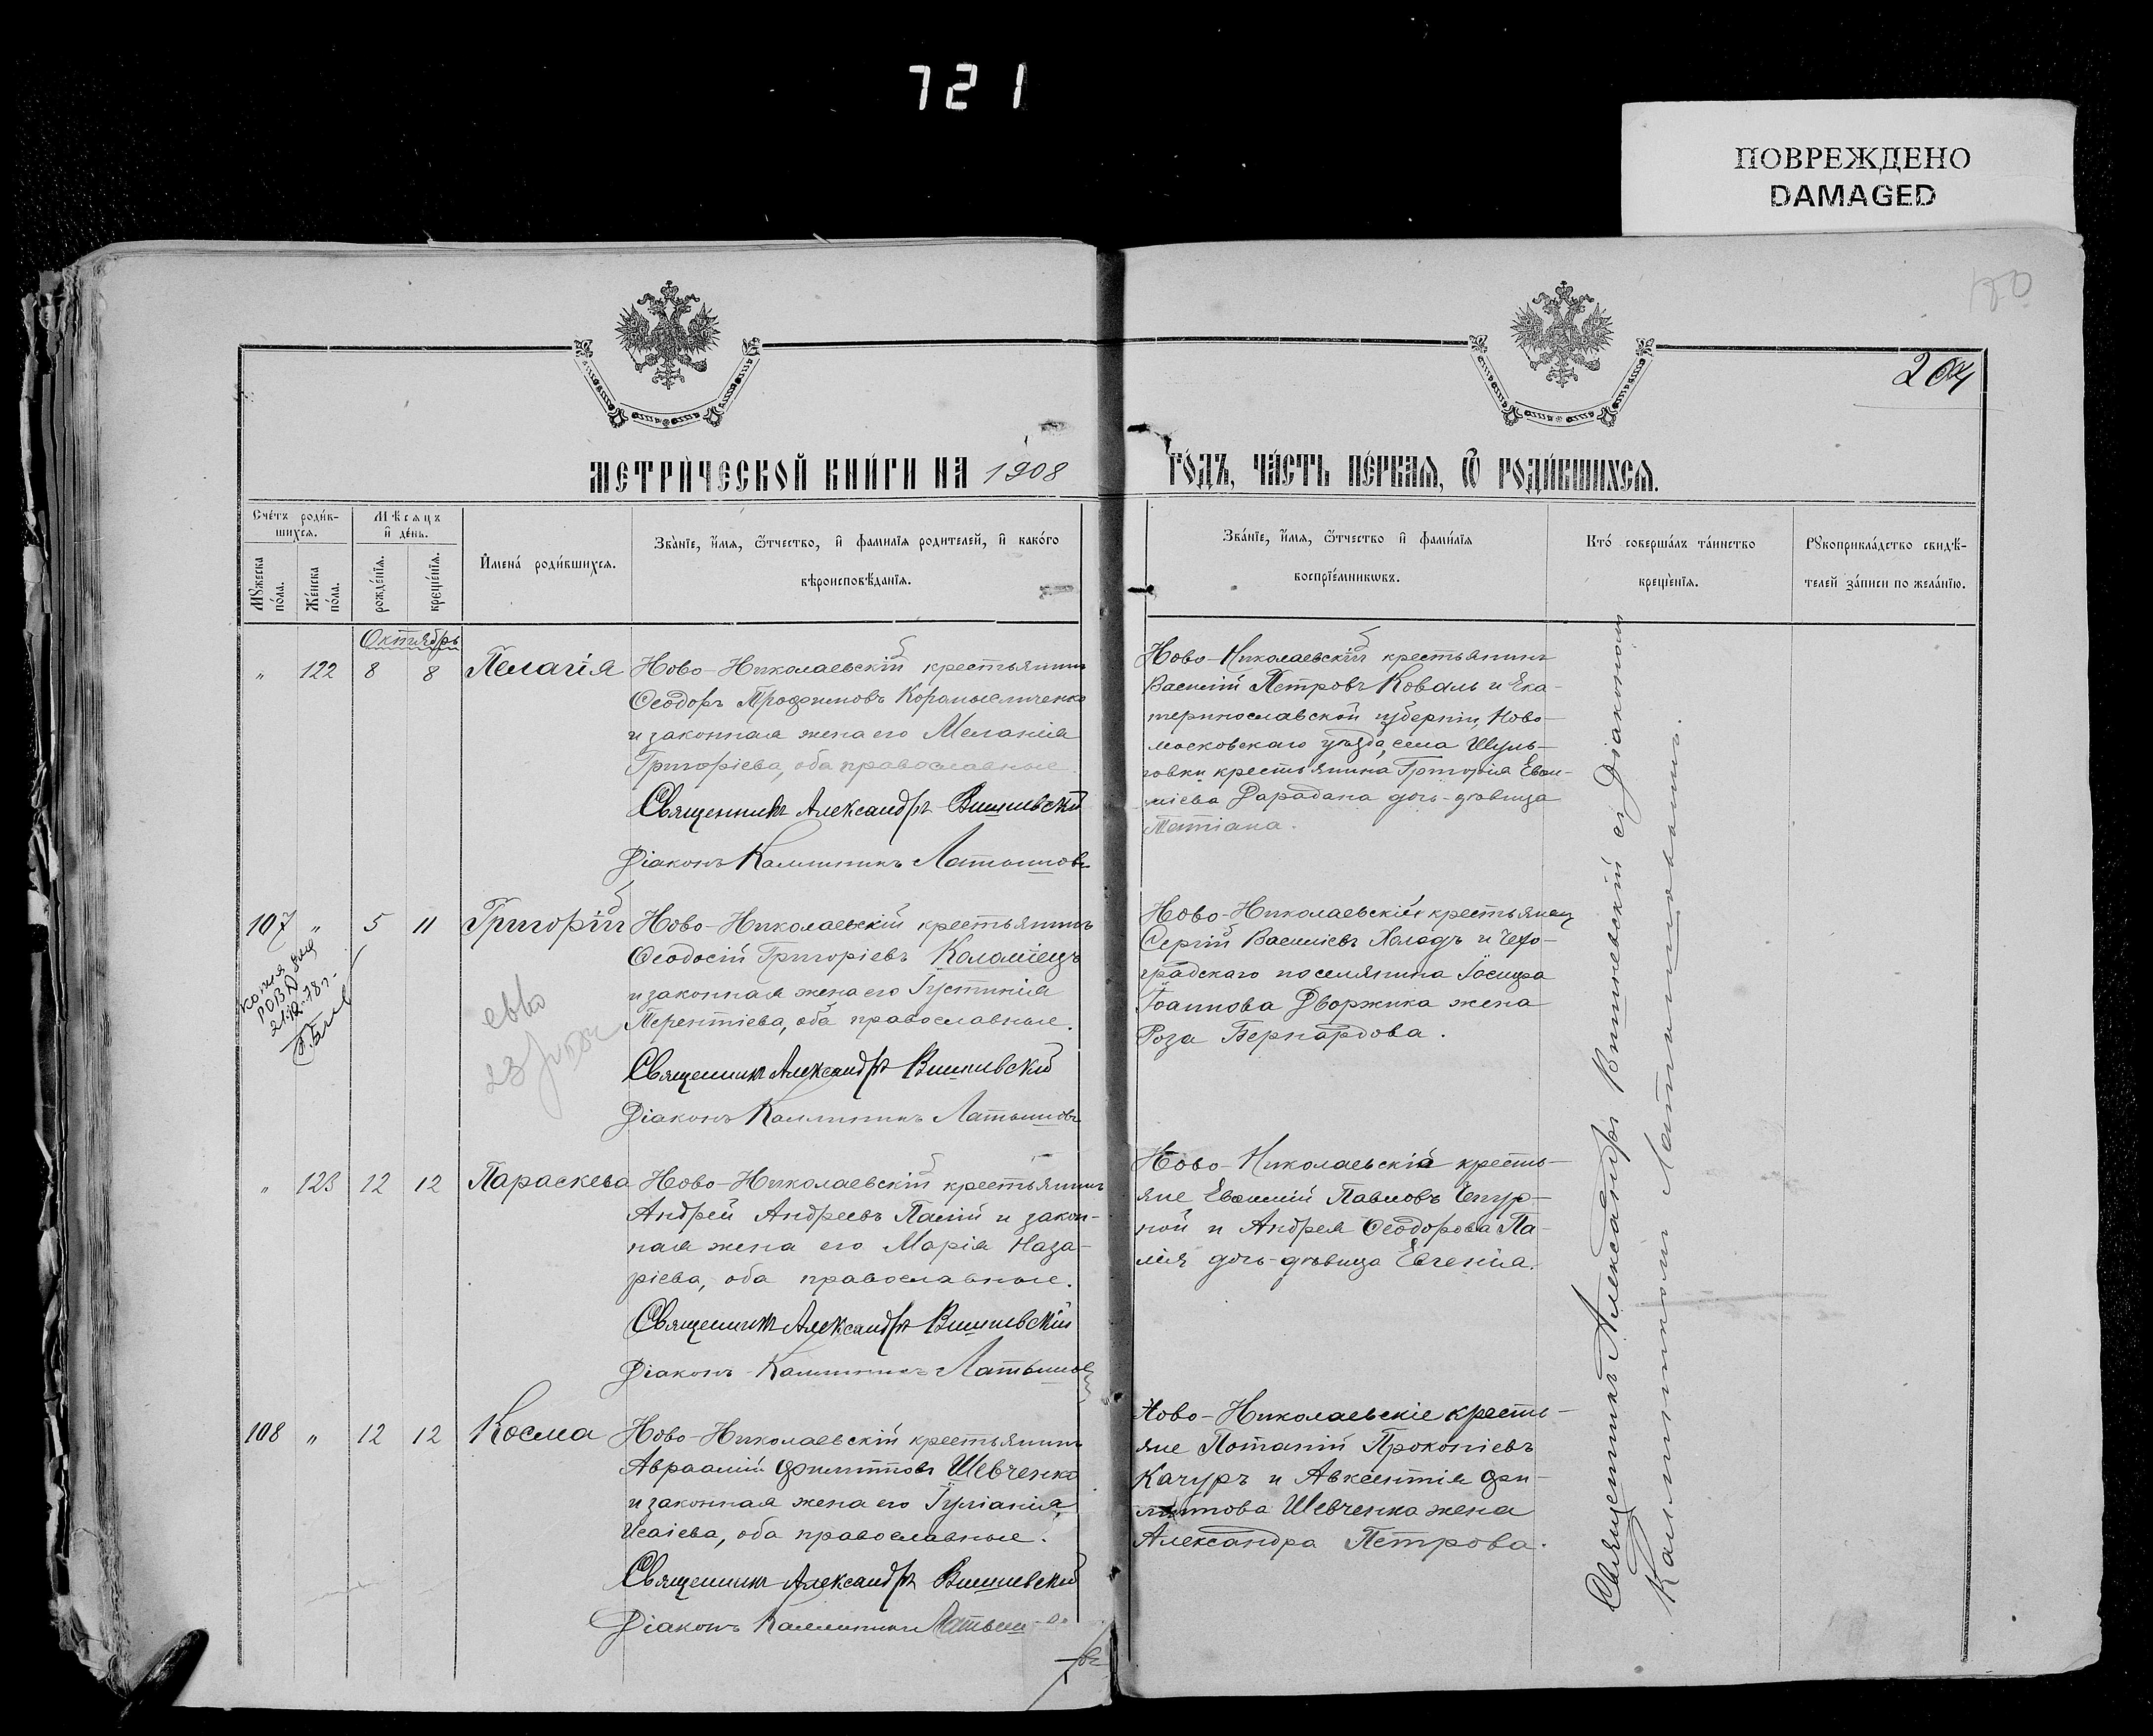 721
ПОВРЕЖДЕНО
DAMAGED
204
МЕТРИ́ЧЕСКОЙ КНИ́ГИ НА 1908 ГО́ДЪ, ЧА́СТЬ ПЕ́РВАѦ, Ѿ РОДИ́ВШИХСѦ.
Сче́тъ роди́в-
шихсѧ.
Мꙋжеска по́ла.
Же́нска по́ла.
Мѣсяцъ
и҆ де́нь.
рожде́нїѧ.
креще́нїѧ.
И҆мена̀ роди́вшихсѧ.
Зва́нїе, и҆́мѧ, ѻ҆́тчество, и҆ фамилїѧ родителей, и҆ како́го
вѣроисповѣ́данїѧ.
Зва́нїе, и҆́мѧ, ѻ҆́тчество и҆ фами́лїѧ
воспрїе́мникѡвъ.
Кто̀ соверша́лъ та́инство
креще́нїѧ.
Рꙋкоприкла́дство свидѣ́-
телей за́писи по жела́нїю.
Октябрь
„ 122 8 8 Пелагія
Ново-Николаевскій крестьянинъ
Ѳеодоръ Трофимовъ Коромысличенко
и законная жена его Меланія
Григоріева, оба православные.
Священникъ Александръ Вишневскій
Діаконъ Каллиникъ Латышовъ
Ново-Николаевскій крестьянинъ
Василій Петровъ Коваль и Ека-
теринославской губерніи, Ново-
московскаго уѣзда, села Шуль-
говки крестьянина Григорія Евѳи-
міева Дарадана дочь-дѣвица
Татіана.
107 „ 5 11 Григорій
Ново-Николаевскій крестьянинъ
Ѳеодосій Григоріевъ Коломіецъ
и законная жена его Іустинія
Терентіева, оба православные.
Священникъ Александръ Вишневскій
Діаконъ Каллиникъ Латышовъ
Ново-Николаевскій крестьянинъ
Сергій Василіевъ Холодъ и Чехо-
градскаго поселянина Іосифа
Іоаннова Дворжика жена
Роза Бернардова.
копия
21.12.78 г.
„ 123 12 12 Параскева
Ново-Николаевскій крестьянинъ
Андрей Андреевъ Палій и закон-
ная жена его Марія Наза-
ріева, оба православные.
Священникъ Александръ Вишневскій
Діаконъ Каллиникъ Латышовъ
Ново-Николаевскіе кресть-
яне Евѳимій Павловъ Чепур-
ной и Андрея Ѳеодорова Па-
лія дочь-дѣвица Евгенія.
108 „ 12 12 Косма
Ново-Николаевскій крестьянинъ
Авраамій Филипповъ Шевченко
и законная жена его Іуліанія
Исаіева, оба православные.
Священникъ Александръ Вишневскій
Діаконъ Каллиникъ Латышо-
въ
Ново-Николаевскіе кресть-
яне Потапій Прокопіевъ
Качуръ и Авксентія Фи-
липпова Шевченка жена
Александра Петрова.
Священникъ Александръ Вишневскій съ Діакономъ
Каллиникомъ Латышовымъ.